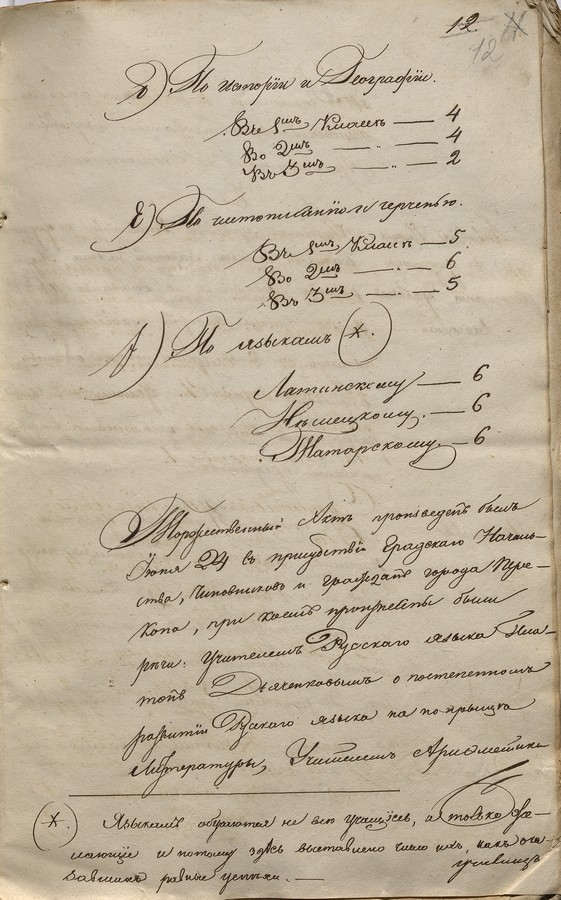 12.
12
д) По исторіи и Географіи.
Въ 1мъ Классѣ — 4
Во 2мъ — „ — 4
Въ 3мъ — „ — 2
е) По чистописанію и черченью.
Въ 1мъ Классѣ — 5.
Во 2мъ — „ — 6
Въ 3мъ — „ — 5
По языкамъ (*).
Латинскому — 6
Нѣмецкому. — 6
Татарскому. — 6
Торжественный Актъ произведенъ былъ
Іюня 24 въ присутствіи Градскаго Началь-
ства, Чиновниковъ и гражданъ города Пере-
копа, при коемъ произнесены были
рѣчи: Учителемъ Русскаго языка
Дьяченковымъ о постепенномъ
развитіи Русскаго языка на поприщѣ
Литературы, Учителемъ Ариѳметики
(*). Языкамъ обучаются не всѣ учащіеся, а только же-
лающіе и потому здѣсь выставлено число ихъ, какъ ока-
завшихъ равные успѣхи. —